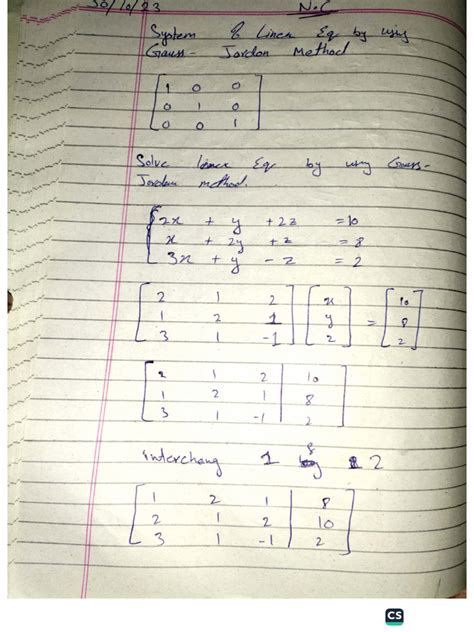 30/10/23 N.C
System of Linear Eq by using
Gauss - Jordon Method
[1 0 0
0 1 0
0 0 1]
Solve linear Eq by using Gauss-
Jordan method.
{2x + y + 2z = 10
x + 2y + z = 8
3x + y - z = 2
[2 1 2] [x] [10]
[1 2 1] [y] = [8]
[3 1 -1] [z] [2]
[2 1 2 | 10]
[1 2 1 | 8]
[3 1 -1 | 2]
interchang 1 & 2
[1 2 1 | 8]
[2 1 2 | 10]
[3 1 -1 | 2]
CS